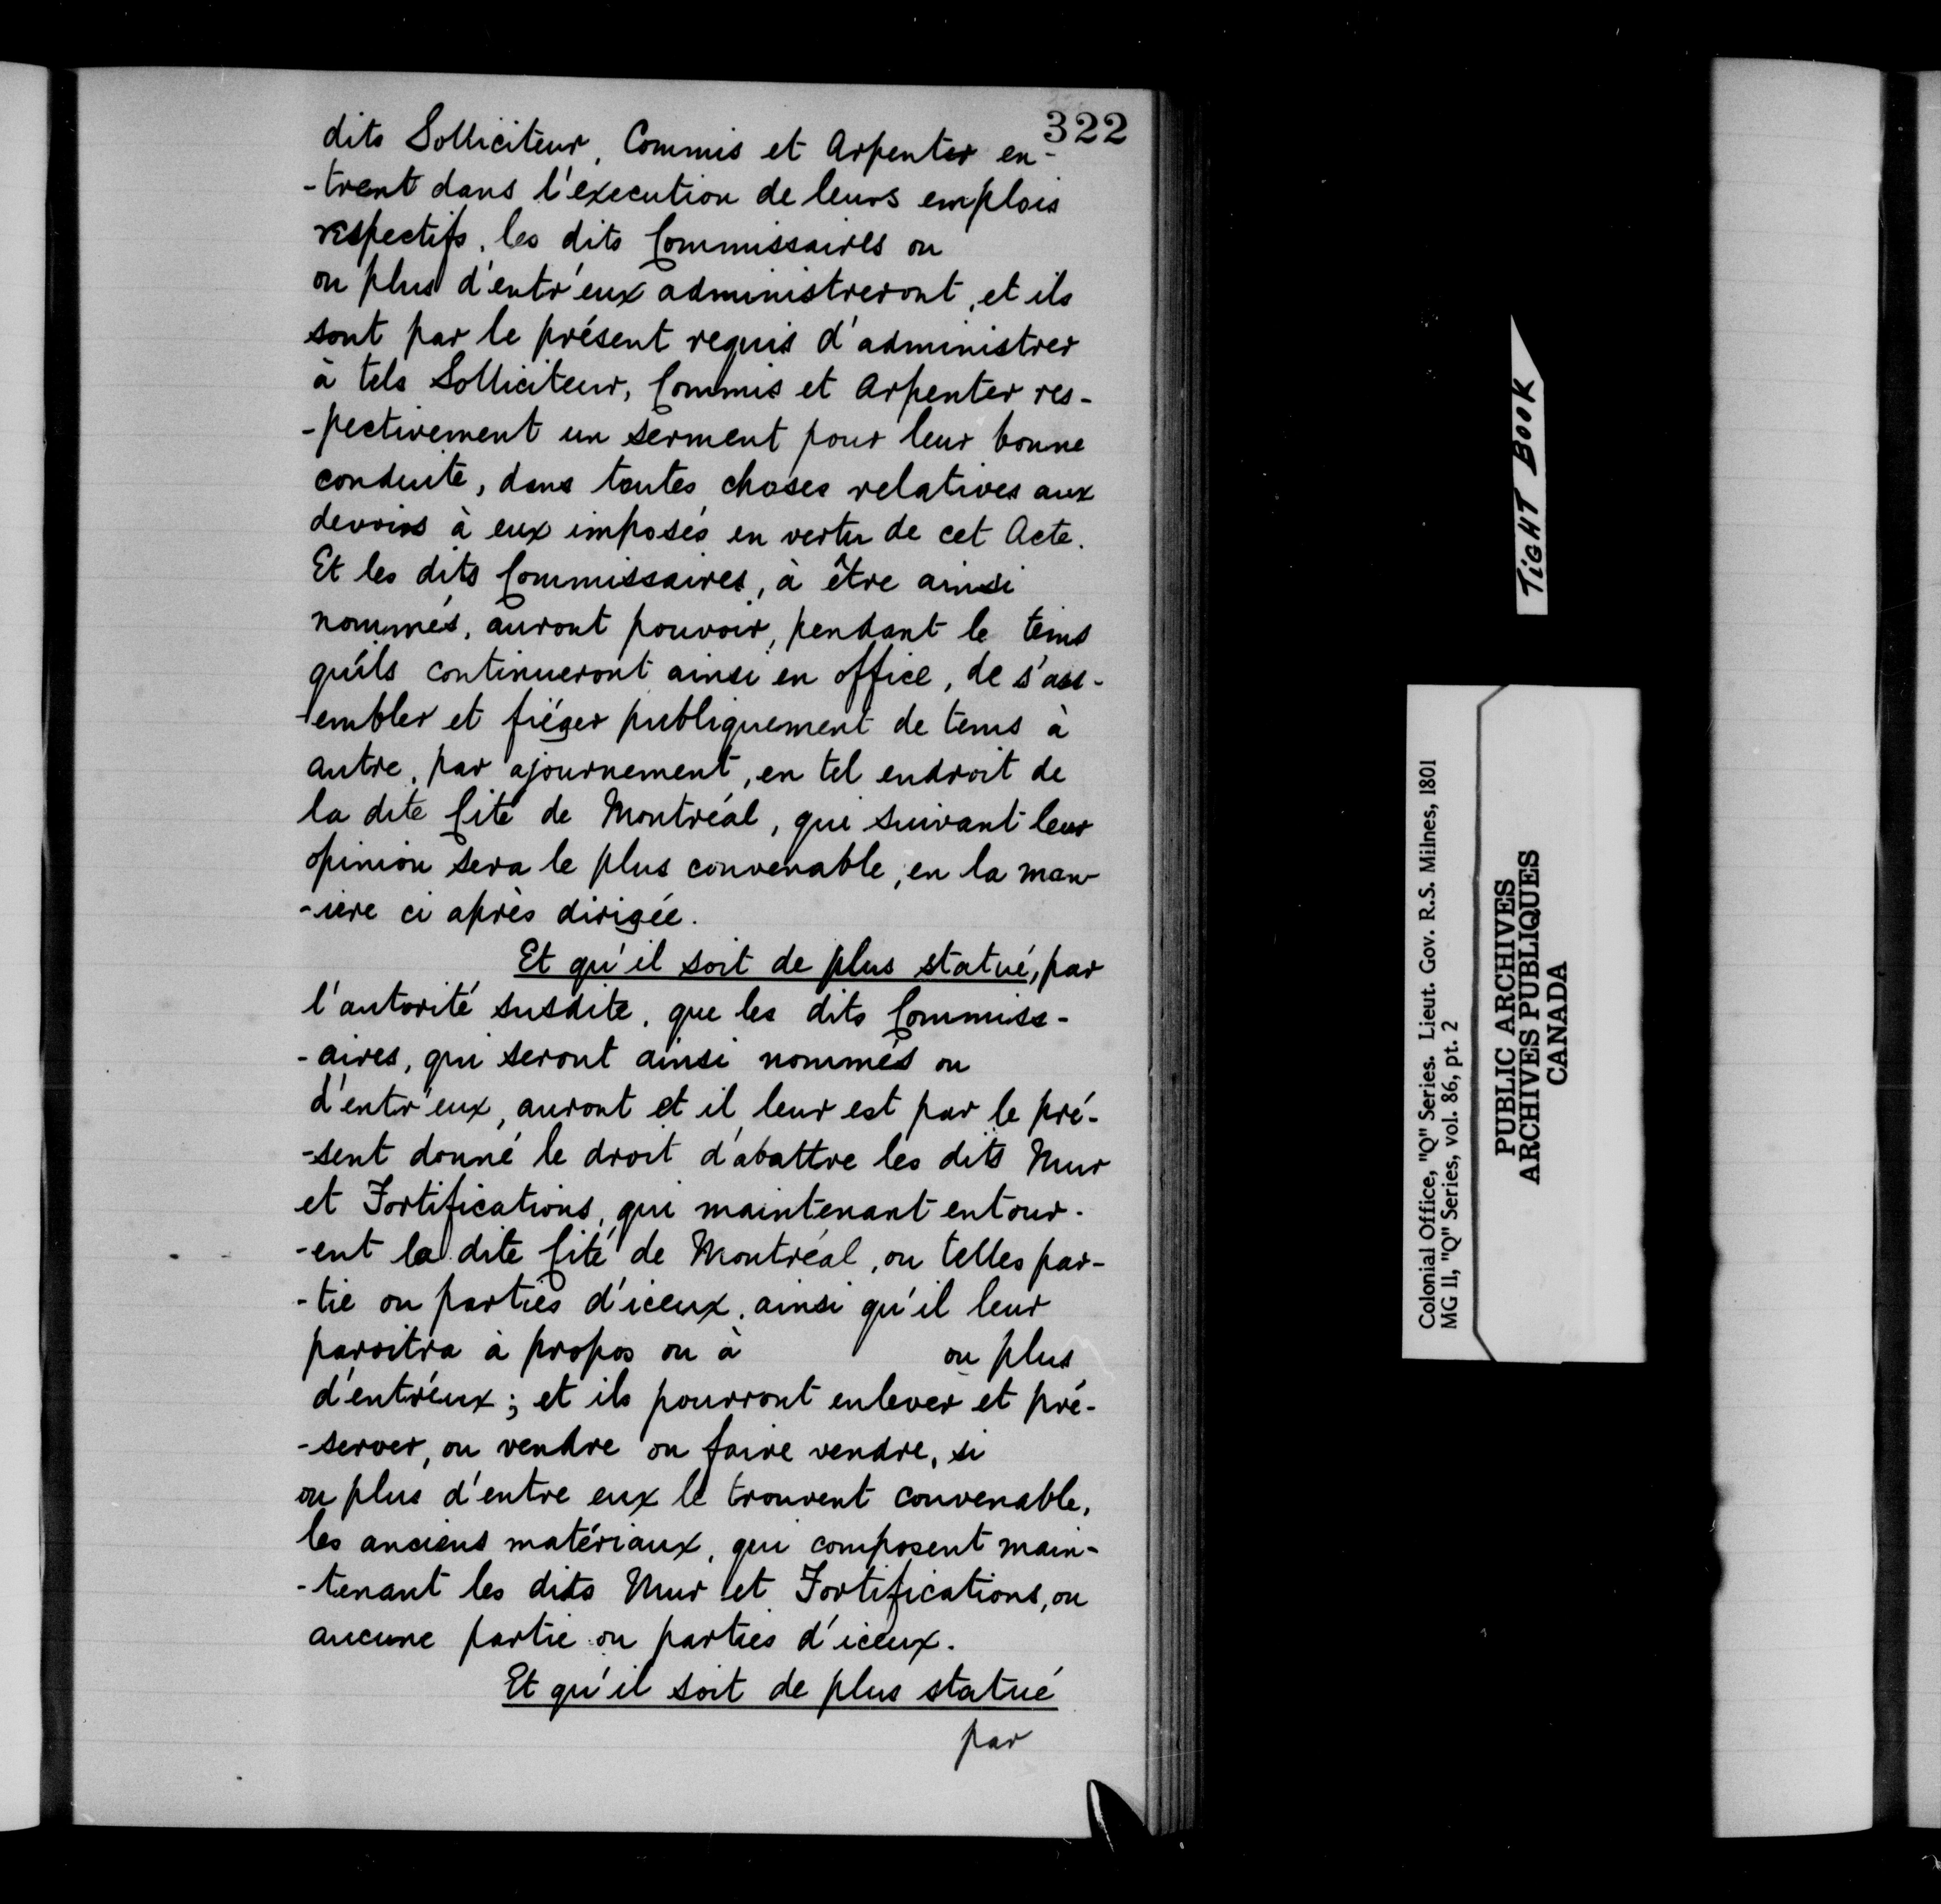 322
dits Solliciteur, Commis et Arpenter en-
-trent dans l'execution de leurs emplois
respectifs, les dits Commissaires ou
ou plus d'entr'eux administreront, et ils
sont par le présent requis d'administrer
à tels Solliciteur, Commis et Arpenter res-
-pectivement un serment pour leur bonne
conduite, dans toutes choses relatives aux
devoirs à eux imposés en vertu de cet Acte.
Et les dits Commissaires, à être ainsi
nommés, auront pouvoir, pendant le tems
qu'ils continueront ainsi en office, de s'ass-
-embler et fiéger publiquement de tems à
autre, par ajournement, en tel endroit de
la dite Cité de Montréal, qui suivant leur
opinion sera le plus convenable, en la man-
-ière ci après dirigée.
Et qu'il soit de plus statué, par
l'autorité susdite, que les dits Commiss-
-aires, qui seront ainsi nommés ou
d'entr'eux, auront et il leur est par le pré-
-sent donné le droit d'abattre les dits Mur
et Fortifications, qui maintenant entour-
-ent la dite Cité de Montréal, ou telles par-
-tie ou parties d'iceux, ainsi qu'il leur
paroitra à propos ou à ou plus
d'entr'eux; et ils pourront enlever et pré-
-server, ou vendre ou faire vendre, si
ou plus d'entre eux le trouvent convenable,
les anciens matériaux, qui composent main-
-tenant les dits Mur et Fortifications, ou
aucune partie ou parties d'iceux.
Et qu'il soit de plus statué
par
TIGHT BOOK
Colonial Office, "Q" Series. Lieut. Gov. R.S. Milnes, 1801
MG 11, "Q" Series, vol. 86, pt. 2
PUBLIC ARCHIVES
ARCHIVES PUBLIQUES
CANADA